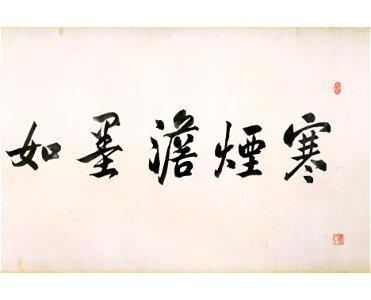 寒煙澹墨如